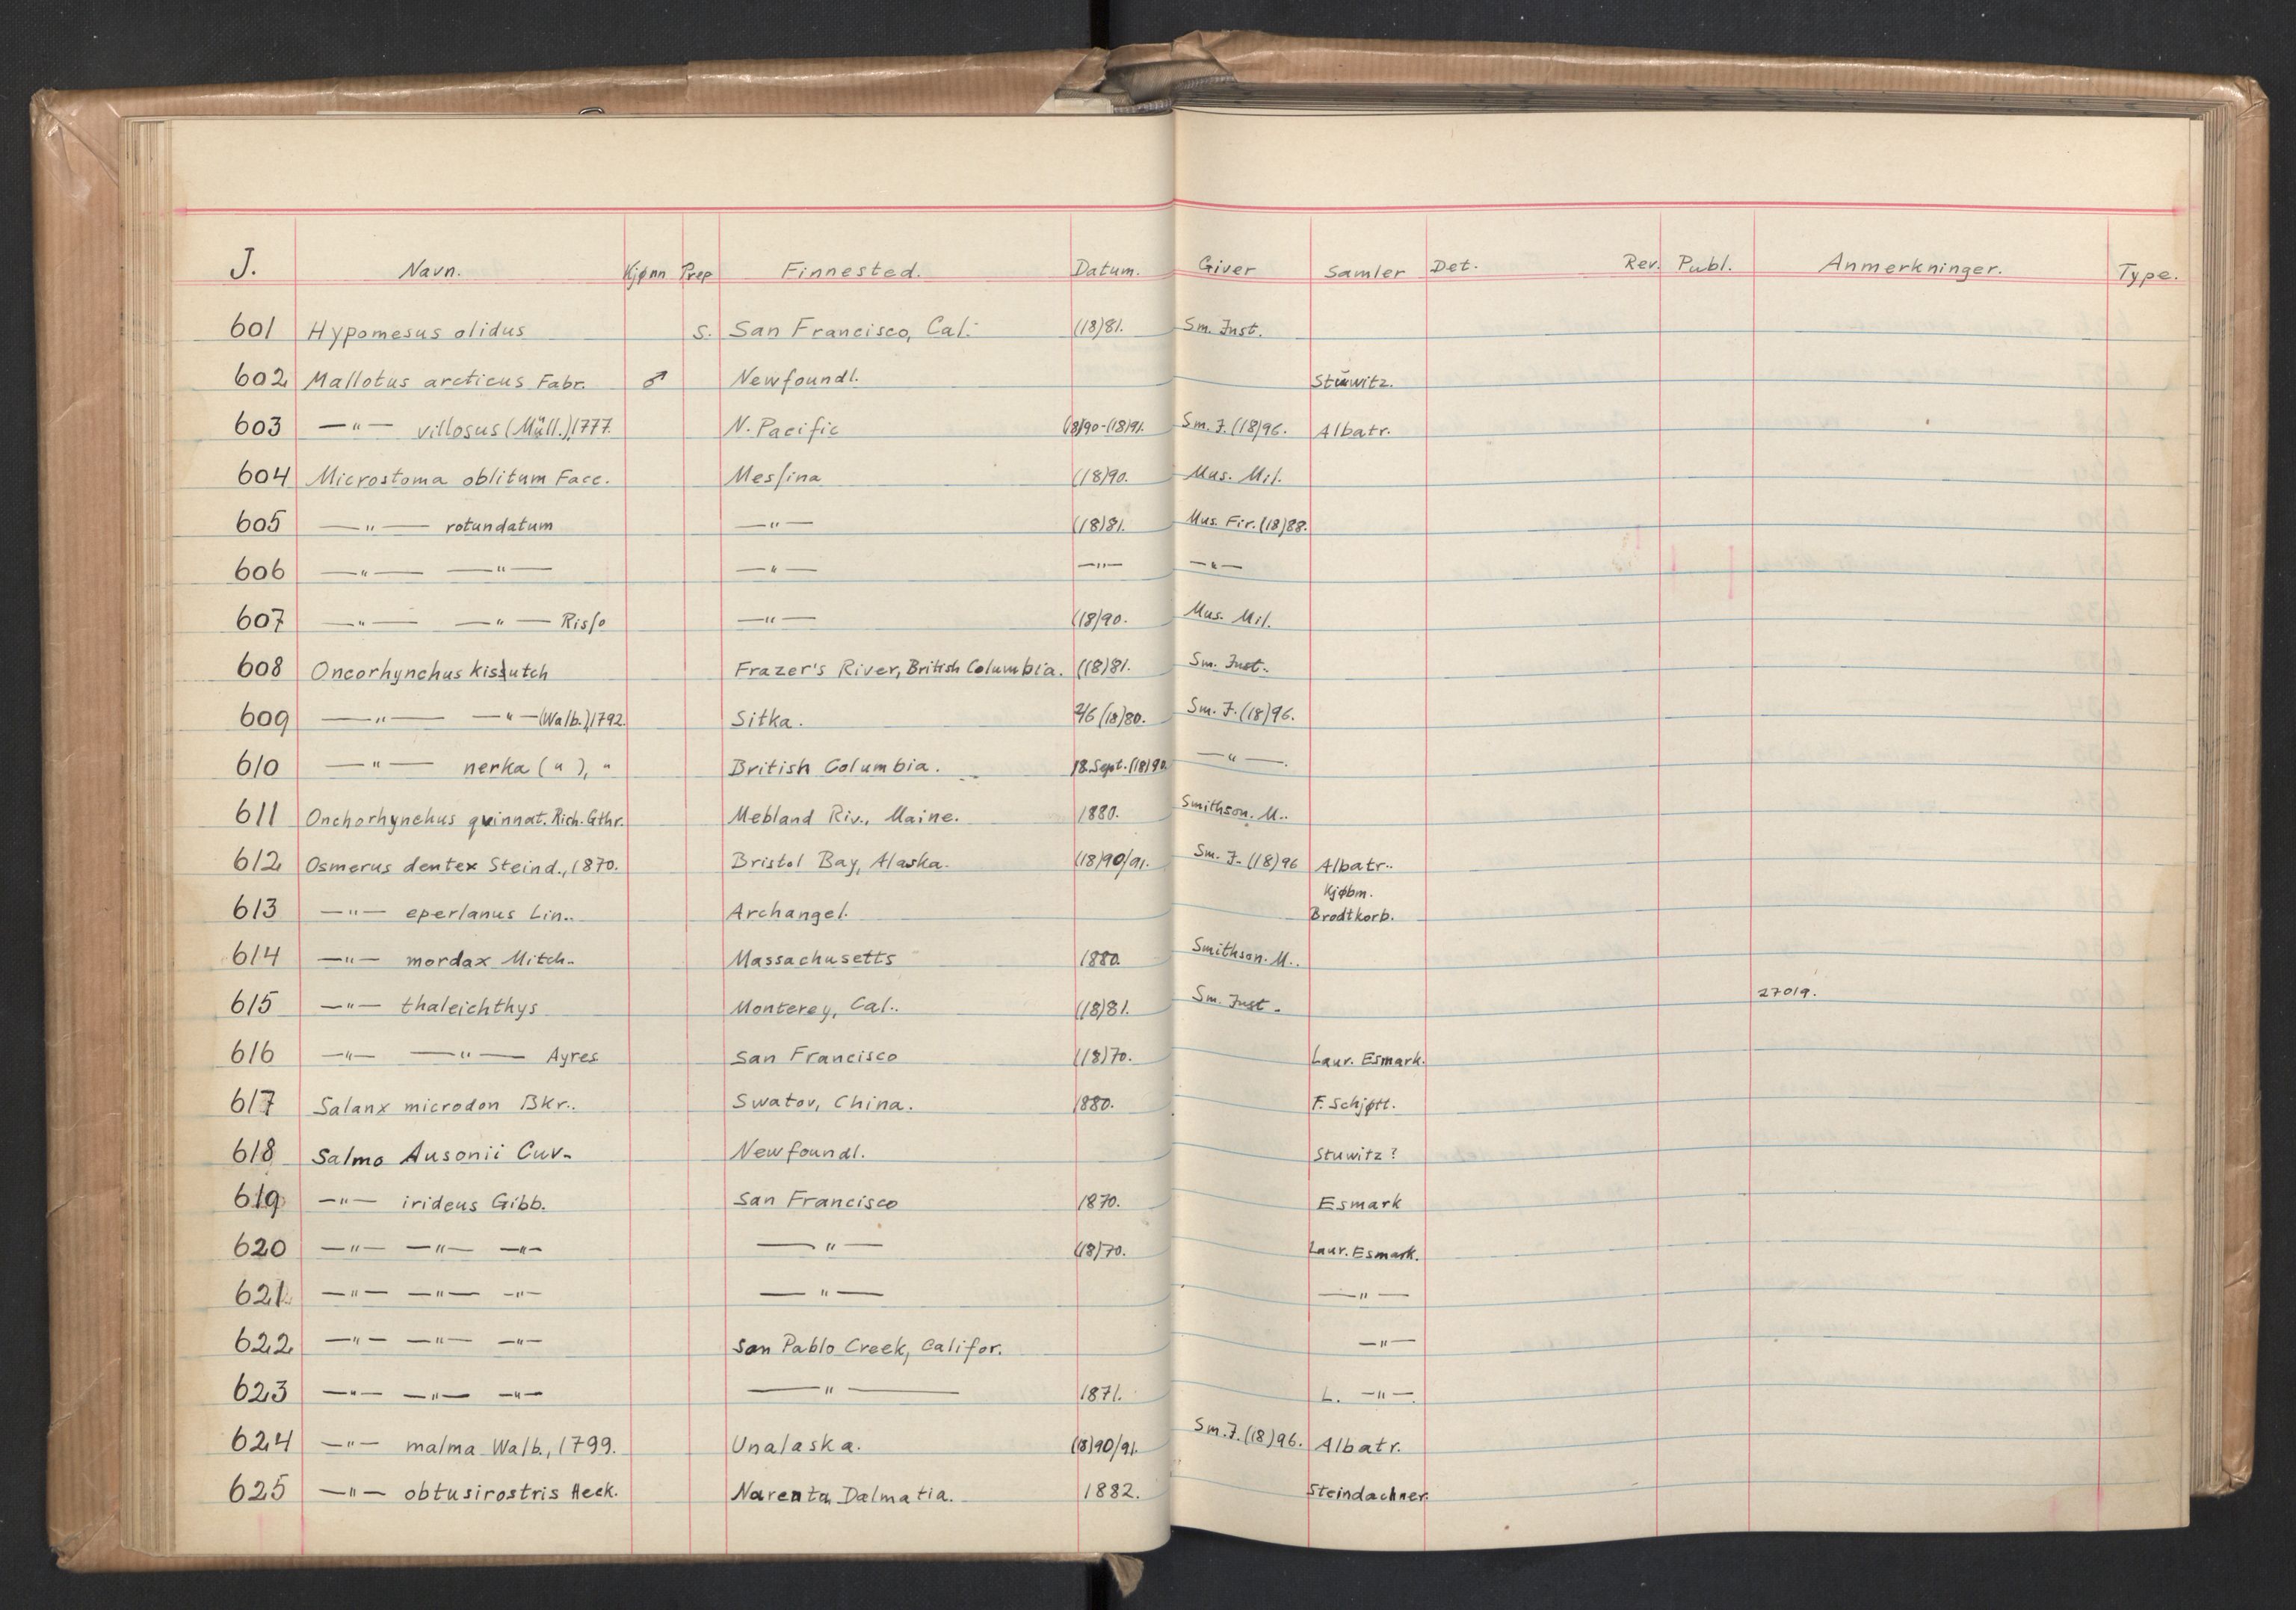 J. Navn. Kjønn Prep Finnested. Datum. Giver Samler Det. Rev. Publ. Anmerkninger. Type.
601 Hypomesus olidus S. San Francisco, Cal. (18)81. Sm. Inst.
602 Mallotus arcticus Fabr. ♂ Newfoundl. Stuwitz.
603 —"— villosus (Müll.), 1777. N. Pacific (18)90-(18)91. Sm. I. (18)96. Albatr.
604 Microstoma oblitum Facc. Messina (18)90. Mus. Mil.
605 —"— rotundatum —"— (18)81. Mus. Fir. (18)88.
606 —"— —"— —"— —"— —"—
607 —"— —"— Risso —"— (18)90. Mus. Mil.
608 Oncorhynchus kisutch Frazer's River, British Columbia. (18)81. Sm. Inst.
609 —"— —"— (Walb.), 1792. Sitka. 2/6 (18)80. Sm. I. (18)96.
610 —"— nerka ( " ), " British Columbia. 18. Sept. (18)90. —"—.
611 Onchorhynchus quinnat. Rich. Gthr. Mebland Riv., Maine. 1880. Smithson. M..
612 Osmerus dentex Steind., 1870. Bristol Bay, Alaska. (18)90/91. Sm. I. (18)96 Albatr..
Kjøbm.
613 —"— eperlanus Lin.. Archangel. Brodtkorb.
614 —"— mordax Mitch. Massachusetts 1880. Smithson. M..
615 —"— thaleichthys Monterey, Cal.. (18)81. Sm. Inst. 27019.
616 —"— —"— Ayres San Francisco (18)70. Laur. Esmark.
617 Salanx microdon Bkr.. Swatov, China. 1880. F. Schjøtt.
618 Salmo Ausonii Cuv. Newfoundl. Stuwitz?
619 —"— irideus Gibb. San Francisco 1870. Esmark
620 —"— —"— —"— —"— (18)70. Laur. Esmark.
621 —"— —"— —"— —"— —"—
622 —"— —"— —"— San Pablo Creek, Califor. —"—
623 —"— —"— —"— —"— 1871. L. —"—.
624 —"— malma Walb., 1799. Unalaska. (18)90/91. Sm. I. (18)96. Albatr.
625 —"— obtusirostris Heck. Narenta Dalmatia. 1882. Steindachner.